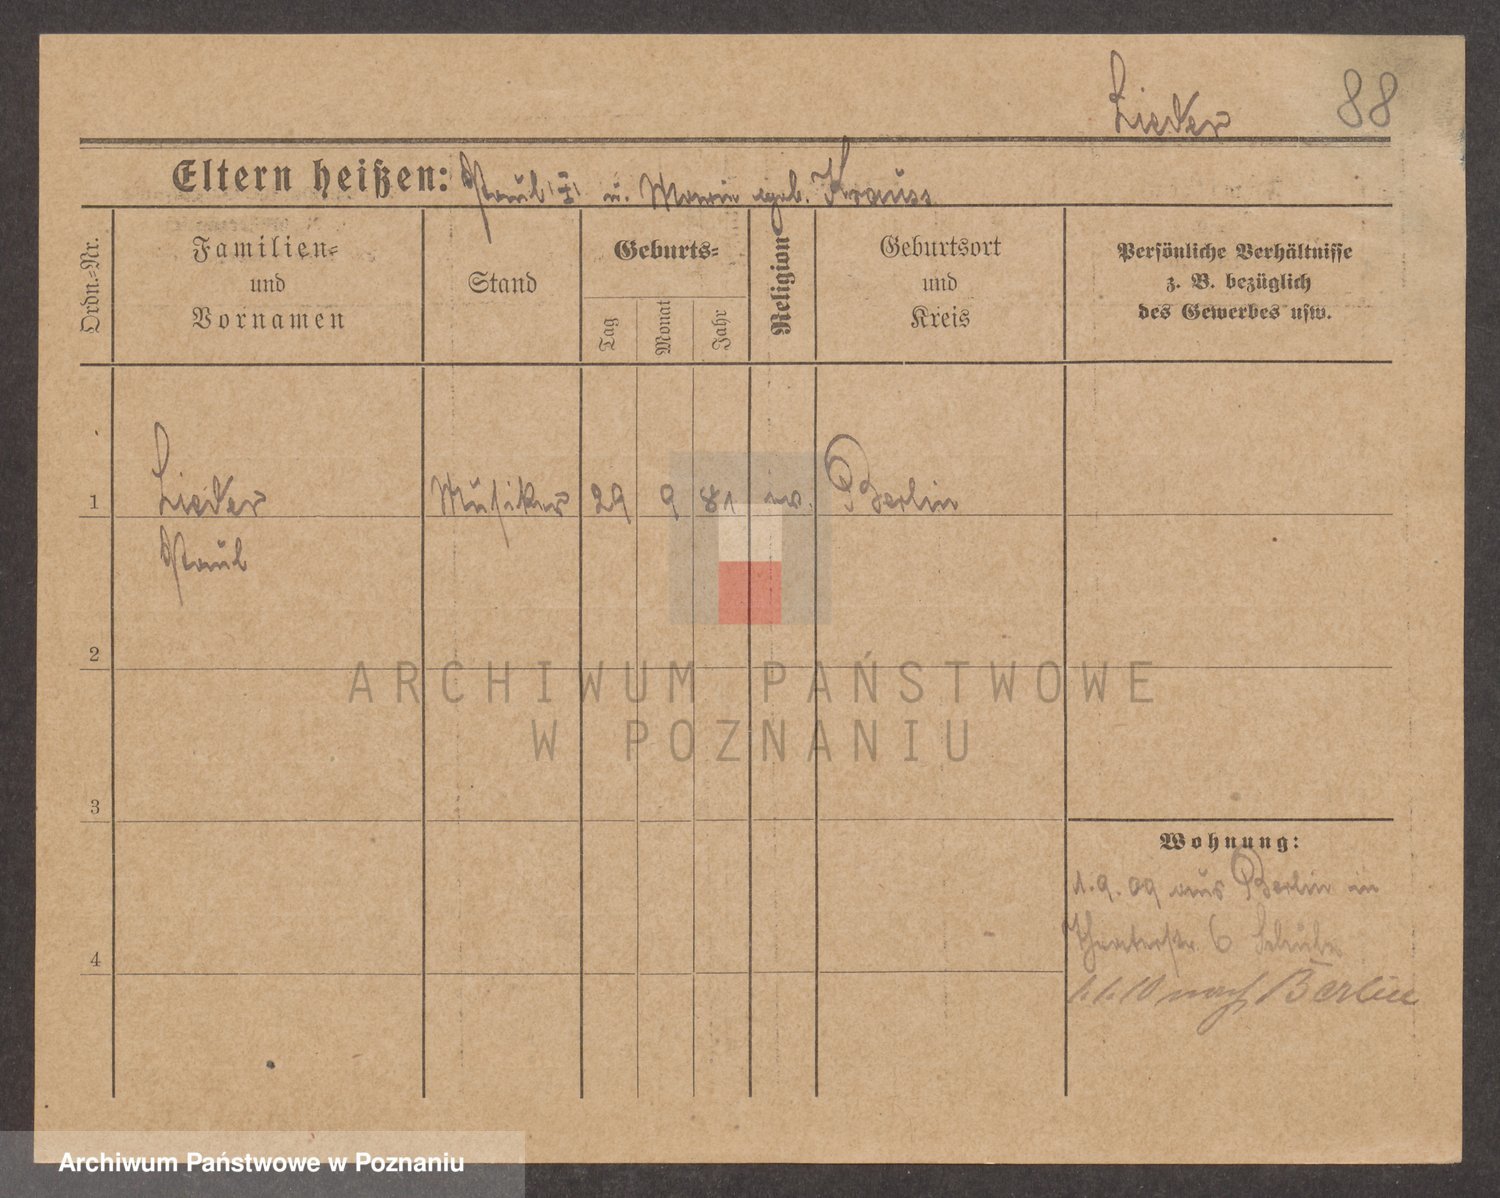 Lieder 88
Eltern heißen: Paul u. Marie geb. Krauss
Ordn.-Nr.
Familien-
und
Vornamen
Stand
Geburts-
Tag
Monat
Jahr
Religion
Geburtsort
und
Kreis
Persönliche Verhältnisse
z. B. bezüglich
des Gewerbes usw.
1 Lieder Musiker 29 9 81 ev. Berlin
Paul
2
3
4
Wohnung:
1.9.09 aus Berlin in
Theaterstr. 6
1.1.10 nach Berlin
ARCHIWUM PAŃSTWOWE
W POZNANIU
Archiwum Państwowe w Poznaniu